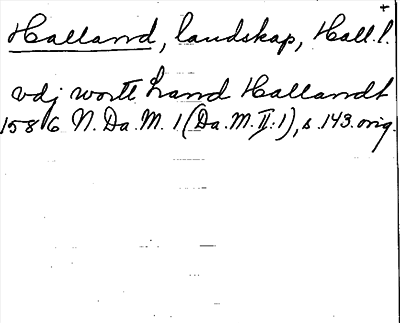 +
Halland, landskap, Hall.l.
vdj wortt Land Hallandt
1586 N. Da. M. 1 (Da. M. II:1), s. 143. orig.